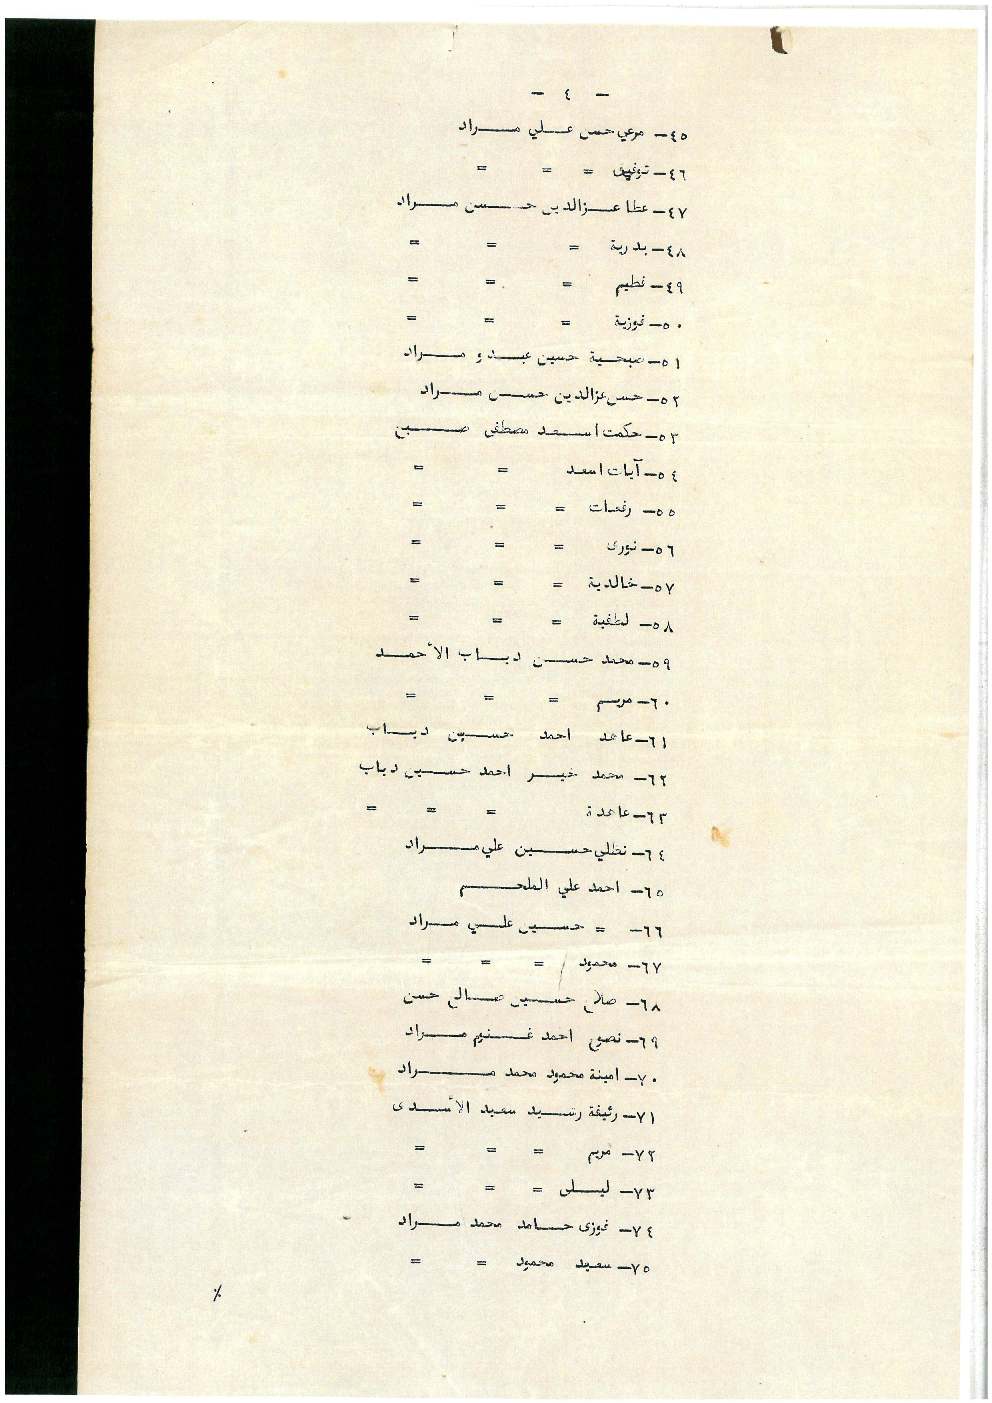 - ٤ -
٤٥- مرعي حسن علي مراد
٤٦- توفيق = = =
٤٧- عطا عزالدين حسن مراد
٤٨- بدرية = = =
٤٩- فطيم = = =
٥٠- فوزية = = =
٥١- صبحية حسين عبد و مراد
٥٢- حسن عزالدين حسن مراد
٥٣- حكمت اسعد مصطفى صبح
٥٤- آيات اسعد = =
٥٥- رفعات = = =
٥٦- نورى = = =
٥٧- خالدية = = =
٥٨- لطفية = = =
٥٩- محمد حسن دياب الأحمد
٦٠- مريم = = =
٦١- عاهد احمد حسين دياب
٦٢- محمد خير احمد حسين دياب
٦٣- عاهدة = = =
٦٤- نظلي حسين علي مراد
٦٥- احمد علي الملحم
٦٦- = حسين علي مراد
٦٧- محمود = = =
٦٨- صالح حسين صالح حسن
٦٩- نصوح احمد غنيم مراد
٧٠- امينة محمود محمد مراد
٧١- رئيفة رشيد سعيد الأسدى
٧٢- مريم = = =
٧٣- ليلى = = =
٧٤- فوزى حامد محمد مراد
٧٥- سعيد محمود = =
٪